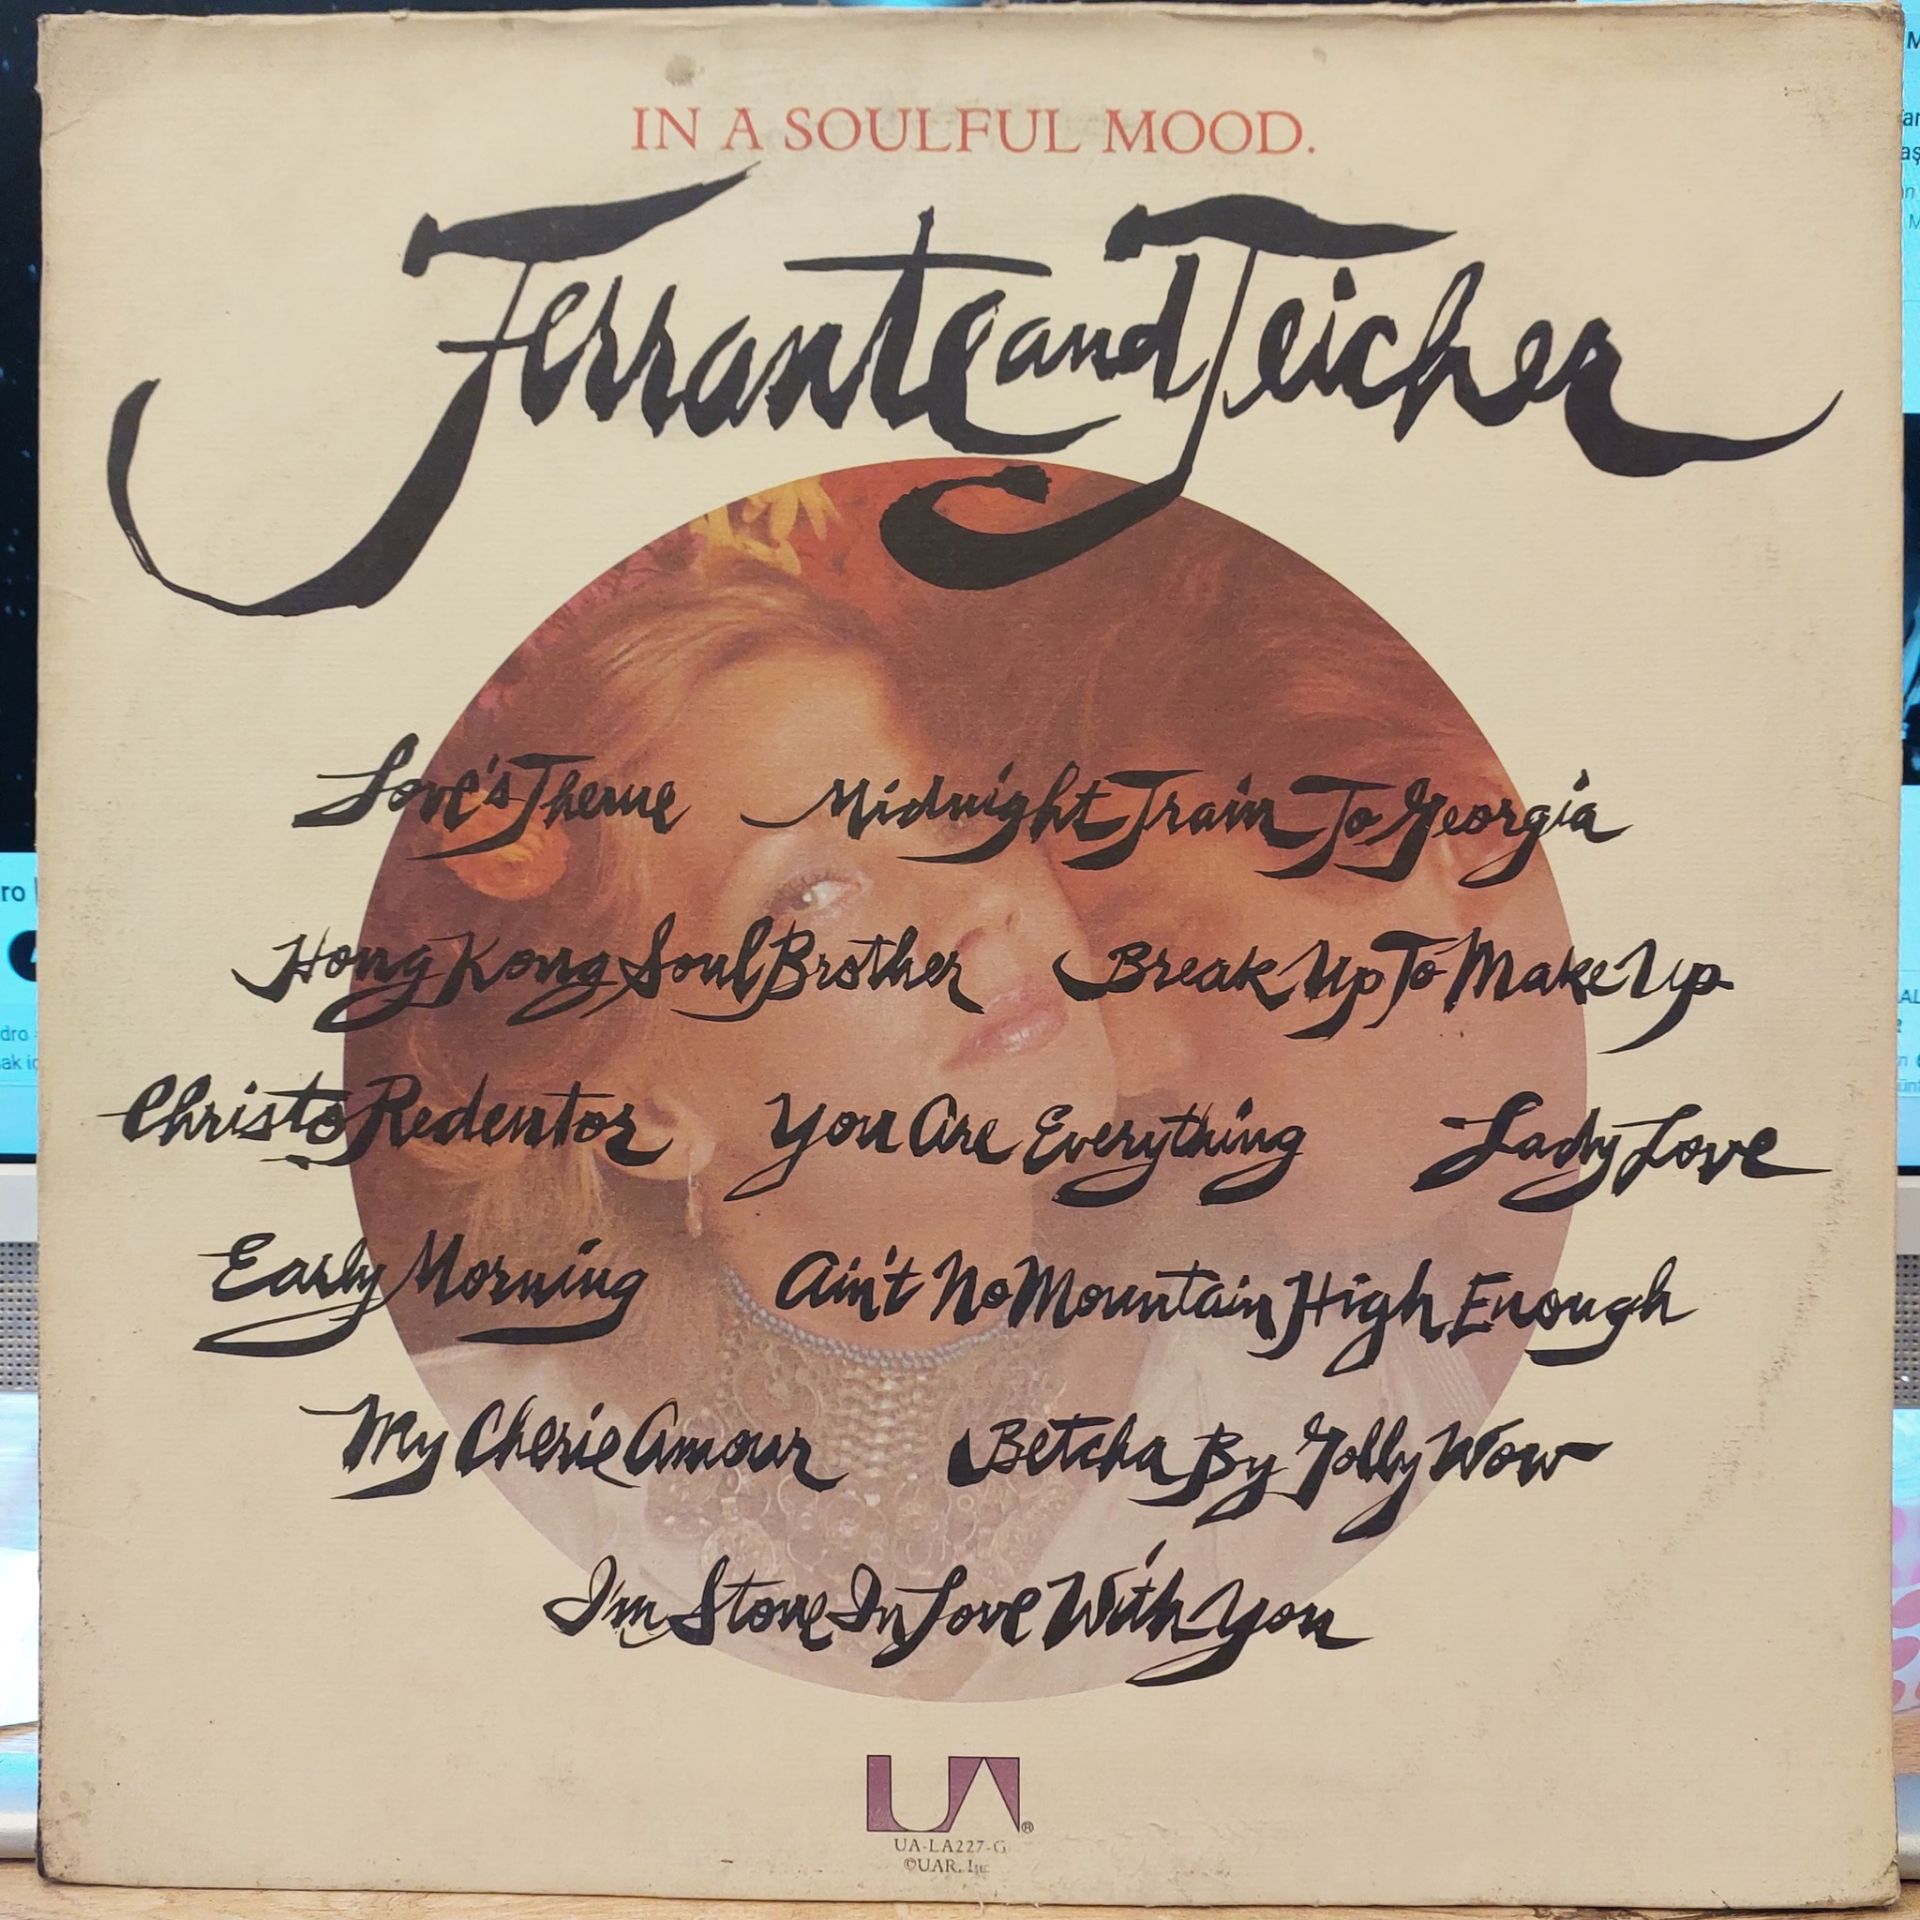 IN A SOULFUL MOOD.
Ferrante and Teicher
Love's Theme Midnight Train To Georgia
Hong Kong Soul Brother Break Up To Make Up
Christo Redentor You Are Everything Lady Love
Early Morning Ain't No Mountain High Enough
My Cherie Amour Betcha By Golly Wow
I'm Stone In Love With You
UA®
UA-LA227-G
©UAR, Inc